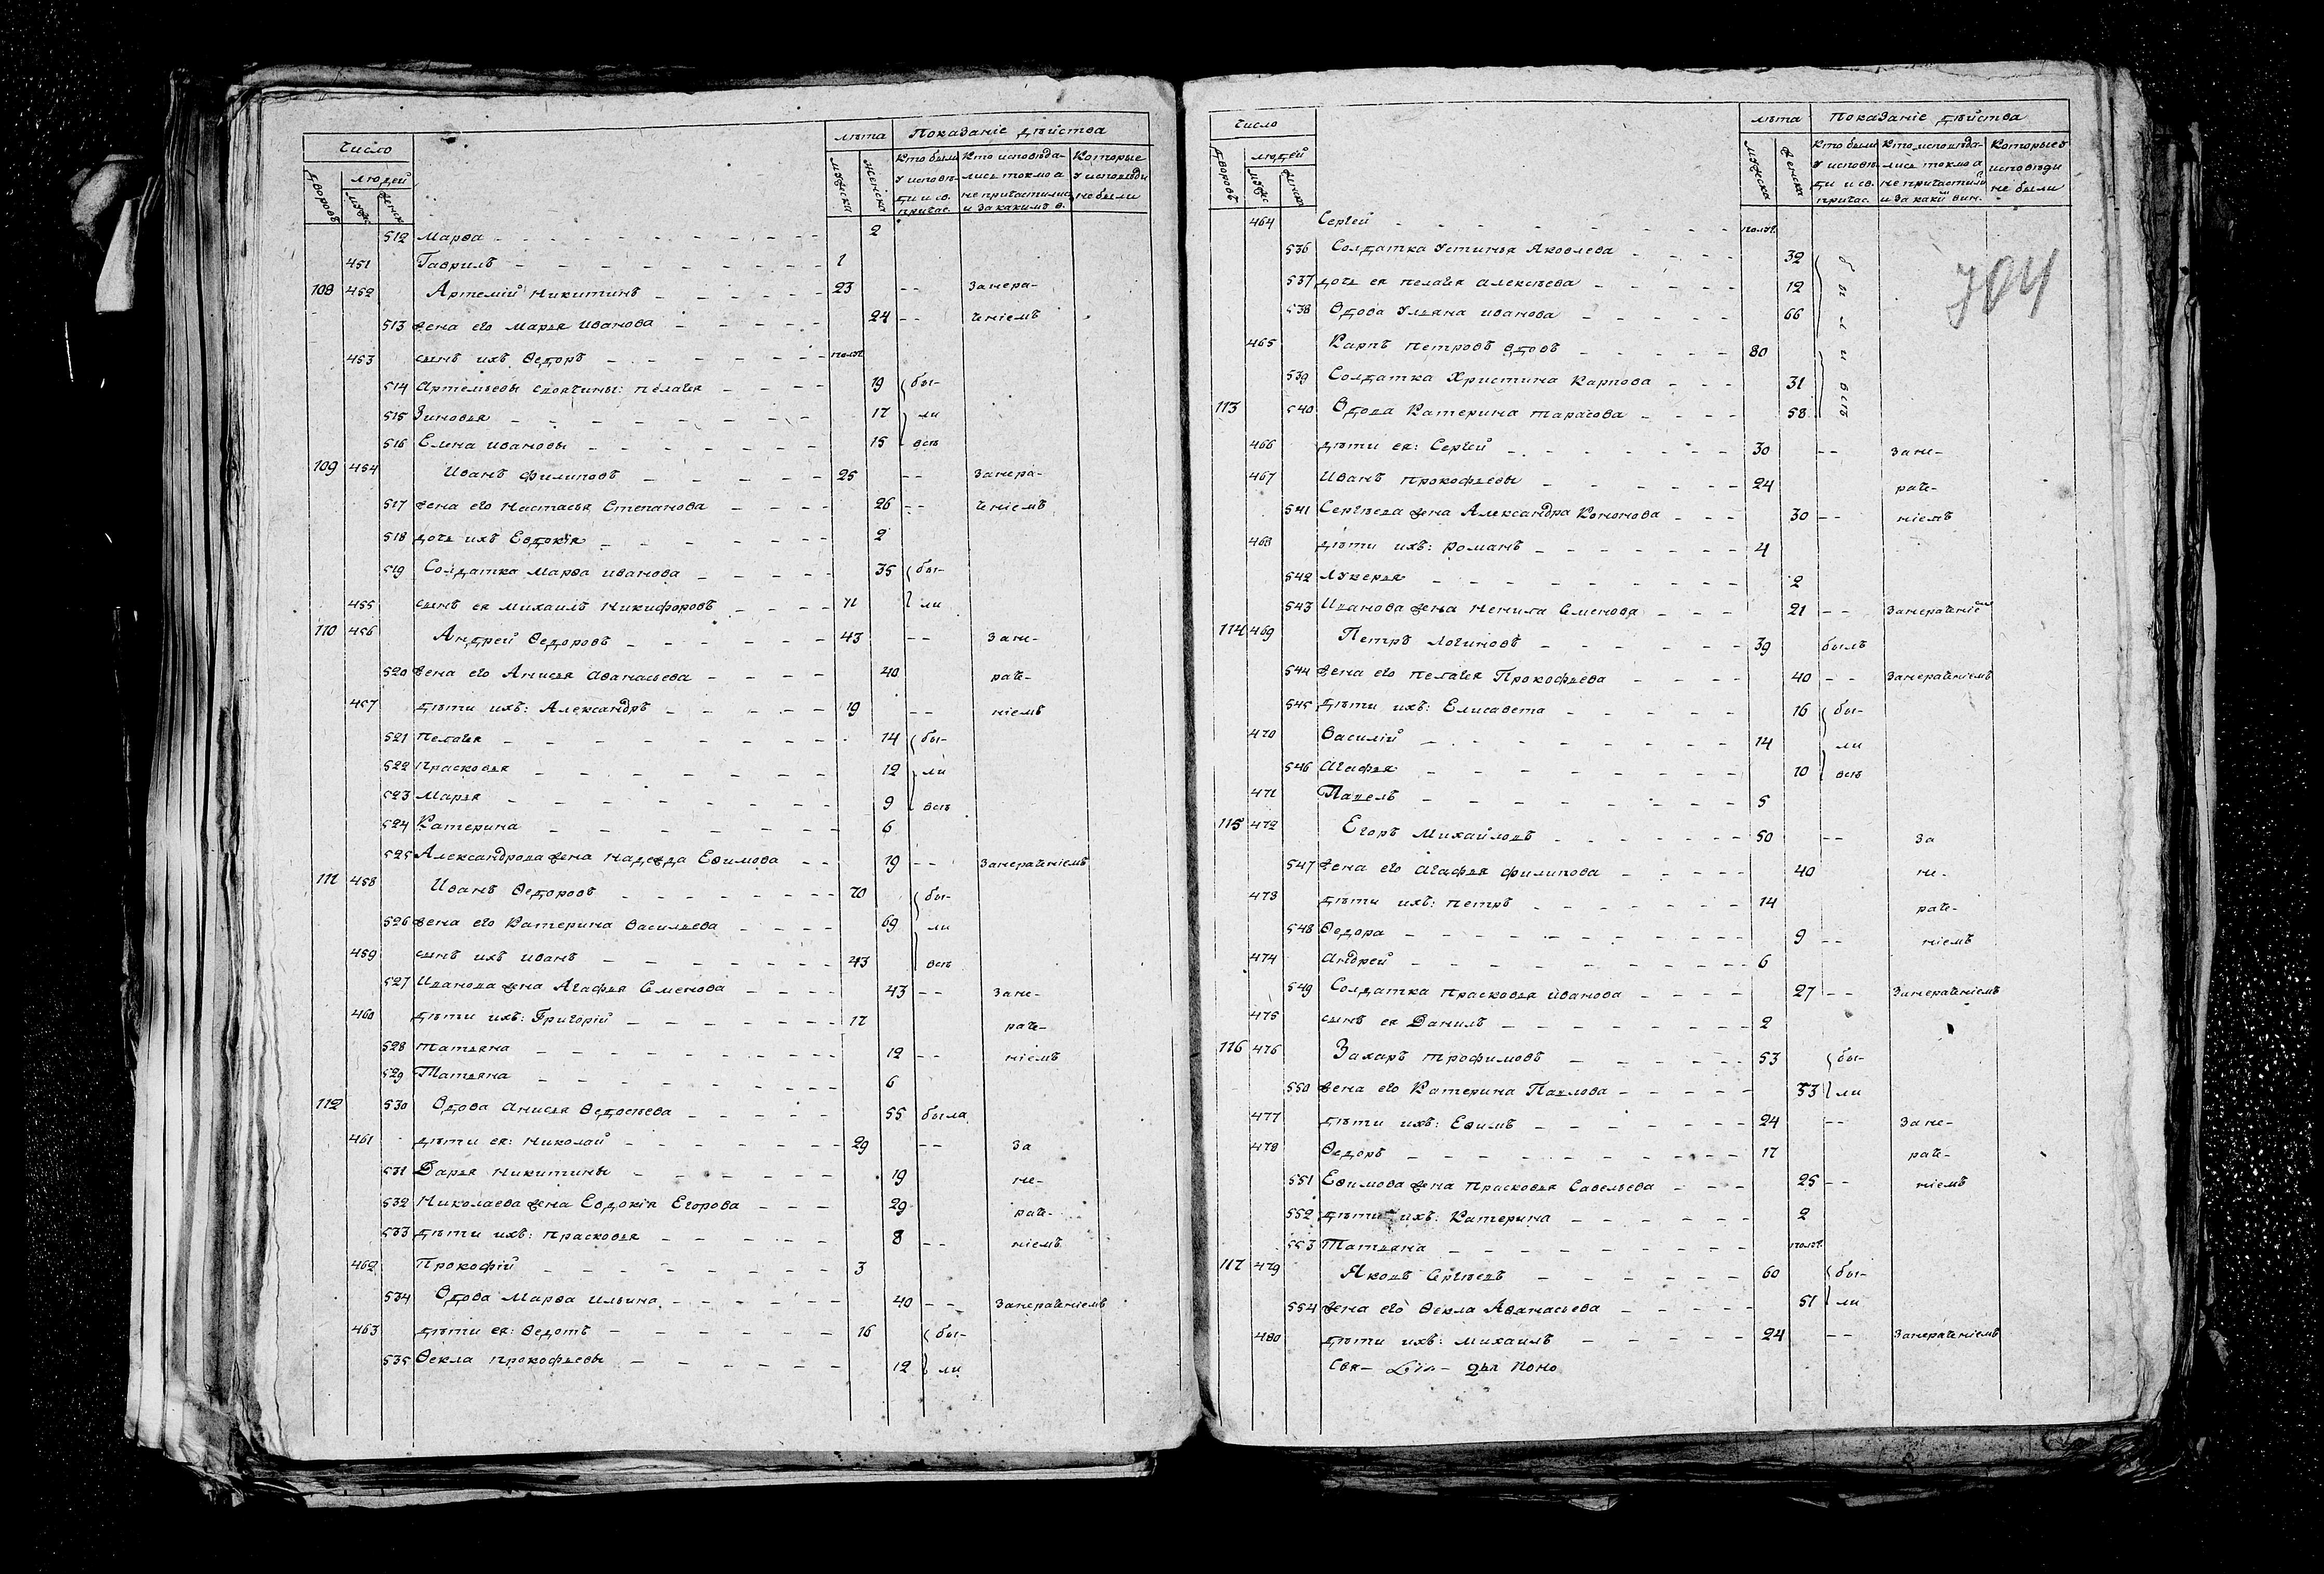 Число
лѣта Показаніе дѣйства
дворовъ людей муж. женск.
мужска женска
Кто были у исповѣди и св. причас. Кто исповѣдались токмо а не причастились и за какимъ в. Которые у исповѣди не были
512 Марѳа 2
451 Гаврилъ 1
108 452 Артемій Никитинъ 23 -- Занера-
513 жена его Марья Иванова 24 -- ченіемъ
453 сынъ ихъ Ѳедоръ полг.
514 Артемьевы своячины: Пелагея 19 бы-
515 Зиновья 17 ли
516 Елина Ивановы 15 всѣ
109 454 Иванъ Филиповъ 25 -- Занера-
517 жена его Настасья Степанова 26 -- ченіемъ
518 дочь ихъ Евдокія 2
519 Солдатка Марѳа Иванова 35 бы-
455 сынъ ея Михаилъ Никифоровъ 11 ли
110 456 Андрей Ѳедоровъ 43 -- Зане-
520 жена его Анисья Аѳанасьева 40 раче-
457 дѣти ихъ: Александръ 19 -- ніемъ
521 Пелагея 14 бы-
522 Прасковья 12 ли
523 Марья 9 всѣ
524 Катерина 6
525 Александрова жена Надежда Еѳимова 19 -- Занераченіемъ
111 458 Иванъ Ѳедоровъ 70 бы-
526 жена его Катерина Васильева 69 ли
459 сынъ ихъ Иванъ 43 всѣ
527 Иванова жена Агафья Семенова 43 -- Зане-
460 дѣти ихъ: Григорій 17 раче-
528 Татьяна 12 -- ніемъ
529 Татьяна 6
112 530 Вдова Анисья Ѳедосѣева 55 была
461 дѣти ея: Николай 29 -- За
531 Дарья Никитины 19 не-
532 Николаева жена Евдокія Егорова 29 раче-
533 дѣти ихъ: Прасковья 8 -- ніемъ
462 Прокофій 3
534 Вдова Марѳа Ильина 40 -- Занераченіемъ
463 дѣти ея: Ѳедотъ 16 бы-
535 Ѳекла Прокофьевы 12 ли
Число
лѣта Показаніе дѣйства
дворовъ людей муж. женск.
мужска женска
Кто были у исповѣди и св. причас. Кто исповѣдались токмо а не причастилй и за какй вин. Которые у исповѣди не были
464 Сергей полг.
536 Солдатка Устинья Яковлева 32 бы
704
537 дочь ея Пелагея Алексѣева 12
538 Вдова Ульяна Иванова 66 л
465 Карпъ Петровъ вдовъ 80 и
539 Солдатка Христина Карпова 31 всѣ
113 540 Вдова Катерина Тарасова 58
466 дѣти ея: Сергей 30 -- Зане-
467 Иванъ Прокофьевы 24 раче-
541 Сергѣева жена Александра Кононова 30 -- ніемъ
468 дѣти ихъ: Романъ 4
542 Лукерья 2
543 Иванова жена Ненила Семенова 21 -- Занераченіем
114 469 Петръ Логиновъ 39 былъ
544 жена его Пелагея Прокофьева 40 -- Занераченіемъ
545 дѣти ихъ: Елисавета 16 бы-
470 Василій 14 ли
546 Агафья 10 всѣ
471 Павелъ 5
115 472 Егоръ Михайловъ 50 -- За
547 жена его Агафья Филипова 40 не-
473 дѣти ихъ: Петръ 14 раче-
548 Ѳедора 9 -- ніемъ
474 Андрей 6
549 Солдатка Прасковья Иванова 27 -- Занераченіемъ
475 сынъ ея Данилъ 2
116 476 Захаръ Трофимовъ 53 бы-
550 жена его Катерина Павлова 53 ли
477 дѣти ихъ: Еѳимъ 24 -- Зане-
478 Ѳедоръ 17 раче-
551 Еѳимова жена Прасковья Савельева 25 -- ніемъ
552 дѣти ихъ: Катерина 2
553 Татьяна полг.
117 479 Яковъ Сергѣевъ 60 бы-
554 жена его Ѳекла Аѳанасьева 51 ли
480 дѣти ихъ: Михаилъ 24 -- Занераченіемъ